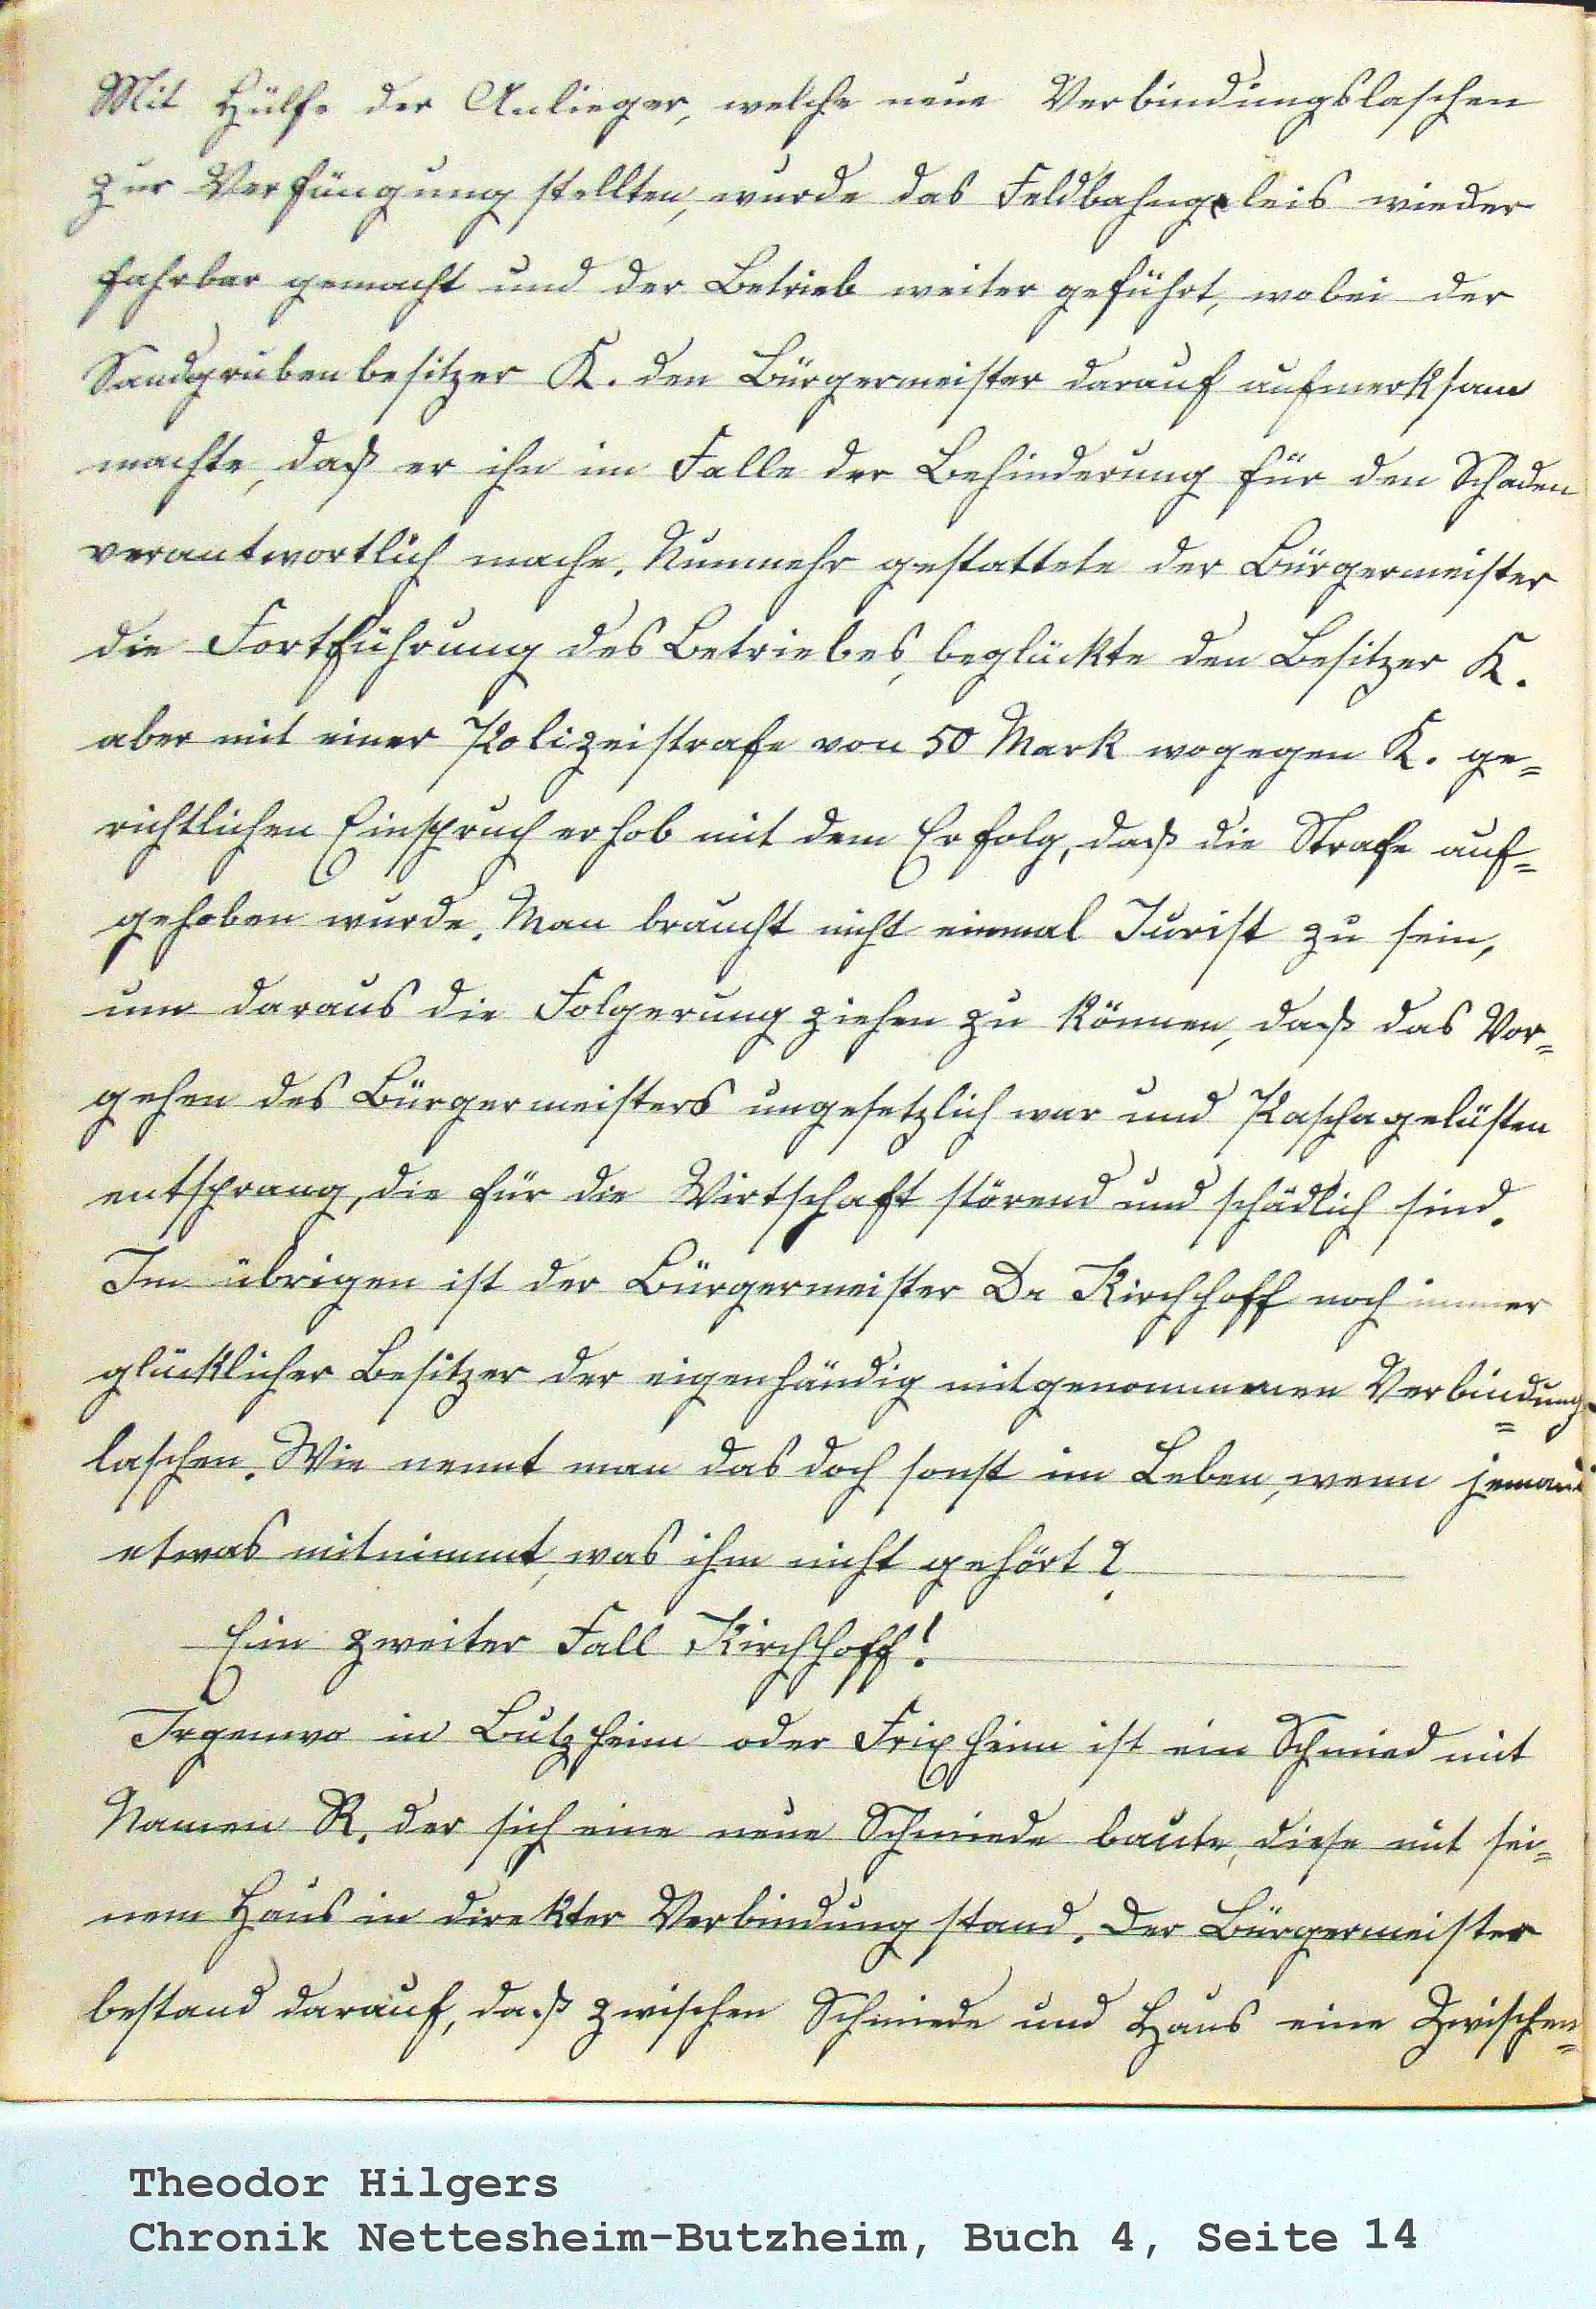 Mit Hülfe der Anlieger, welche neue Verbindungslaschen
zur Verfüngung stellten, wurde das Feldbahngeleis wieder
fahrbar gemacht und der Betrieb weiter geführt, wobei der
Sandgrubenbesitzer K. den Bürgermeister darauf aufmerksam
machte, daß er ihn im Falle der Behinderung für den Schaden
verantwortlich mache. Nunmehr gestattete der Bürgermeister
die Fortführung des Betriebes, beglückte den Besitzer K.
aber mit einer Polizeistrafe von 50 Mark wogegen K. ge=
richtlichen Einspruch erhob mit dem Erfolg, daß die Strafe auf=
gehoben wurde. Man braucht nicht einmal Jurist zu sein,
um daraus die Folgerung ziehen zu können, daß das Vor=
gehen des Bürgermeisters ungesetzlich war und Paschagelüsten
entsprang, die für die Wirtschaft störend und schädlich sind.
Im übrigen ist der Bürgermeister Dr Kirchhoff noch immer
glücklicher Besitzer der eigenhändig mitgenommenen Verbindungs=
laschen. Wie nennt man das doch sonst im Leben, wenn jemand
etwas mitnimmt, was ihm nicht gehört?
Ein zweiter Fall Kirchhoff!
Irgenwo in Butzheim oder Frixheim ist ein Schmied mit
Namen R. der sich eine neue Schmiede baute, diese mit sei=
nem Haus in direkter Verbindung stand. Der Bürgermeister
bestand darauf, daß zwischen Schmiede und Haus eine Zwischen=
Theodor Hilgers
Chronik Nettesheim-Butzheim, Buch 4, Seite 14